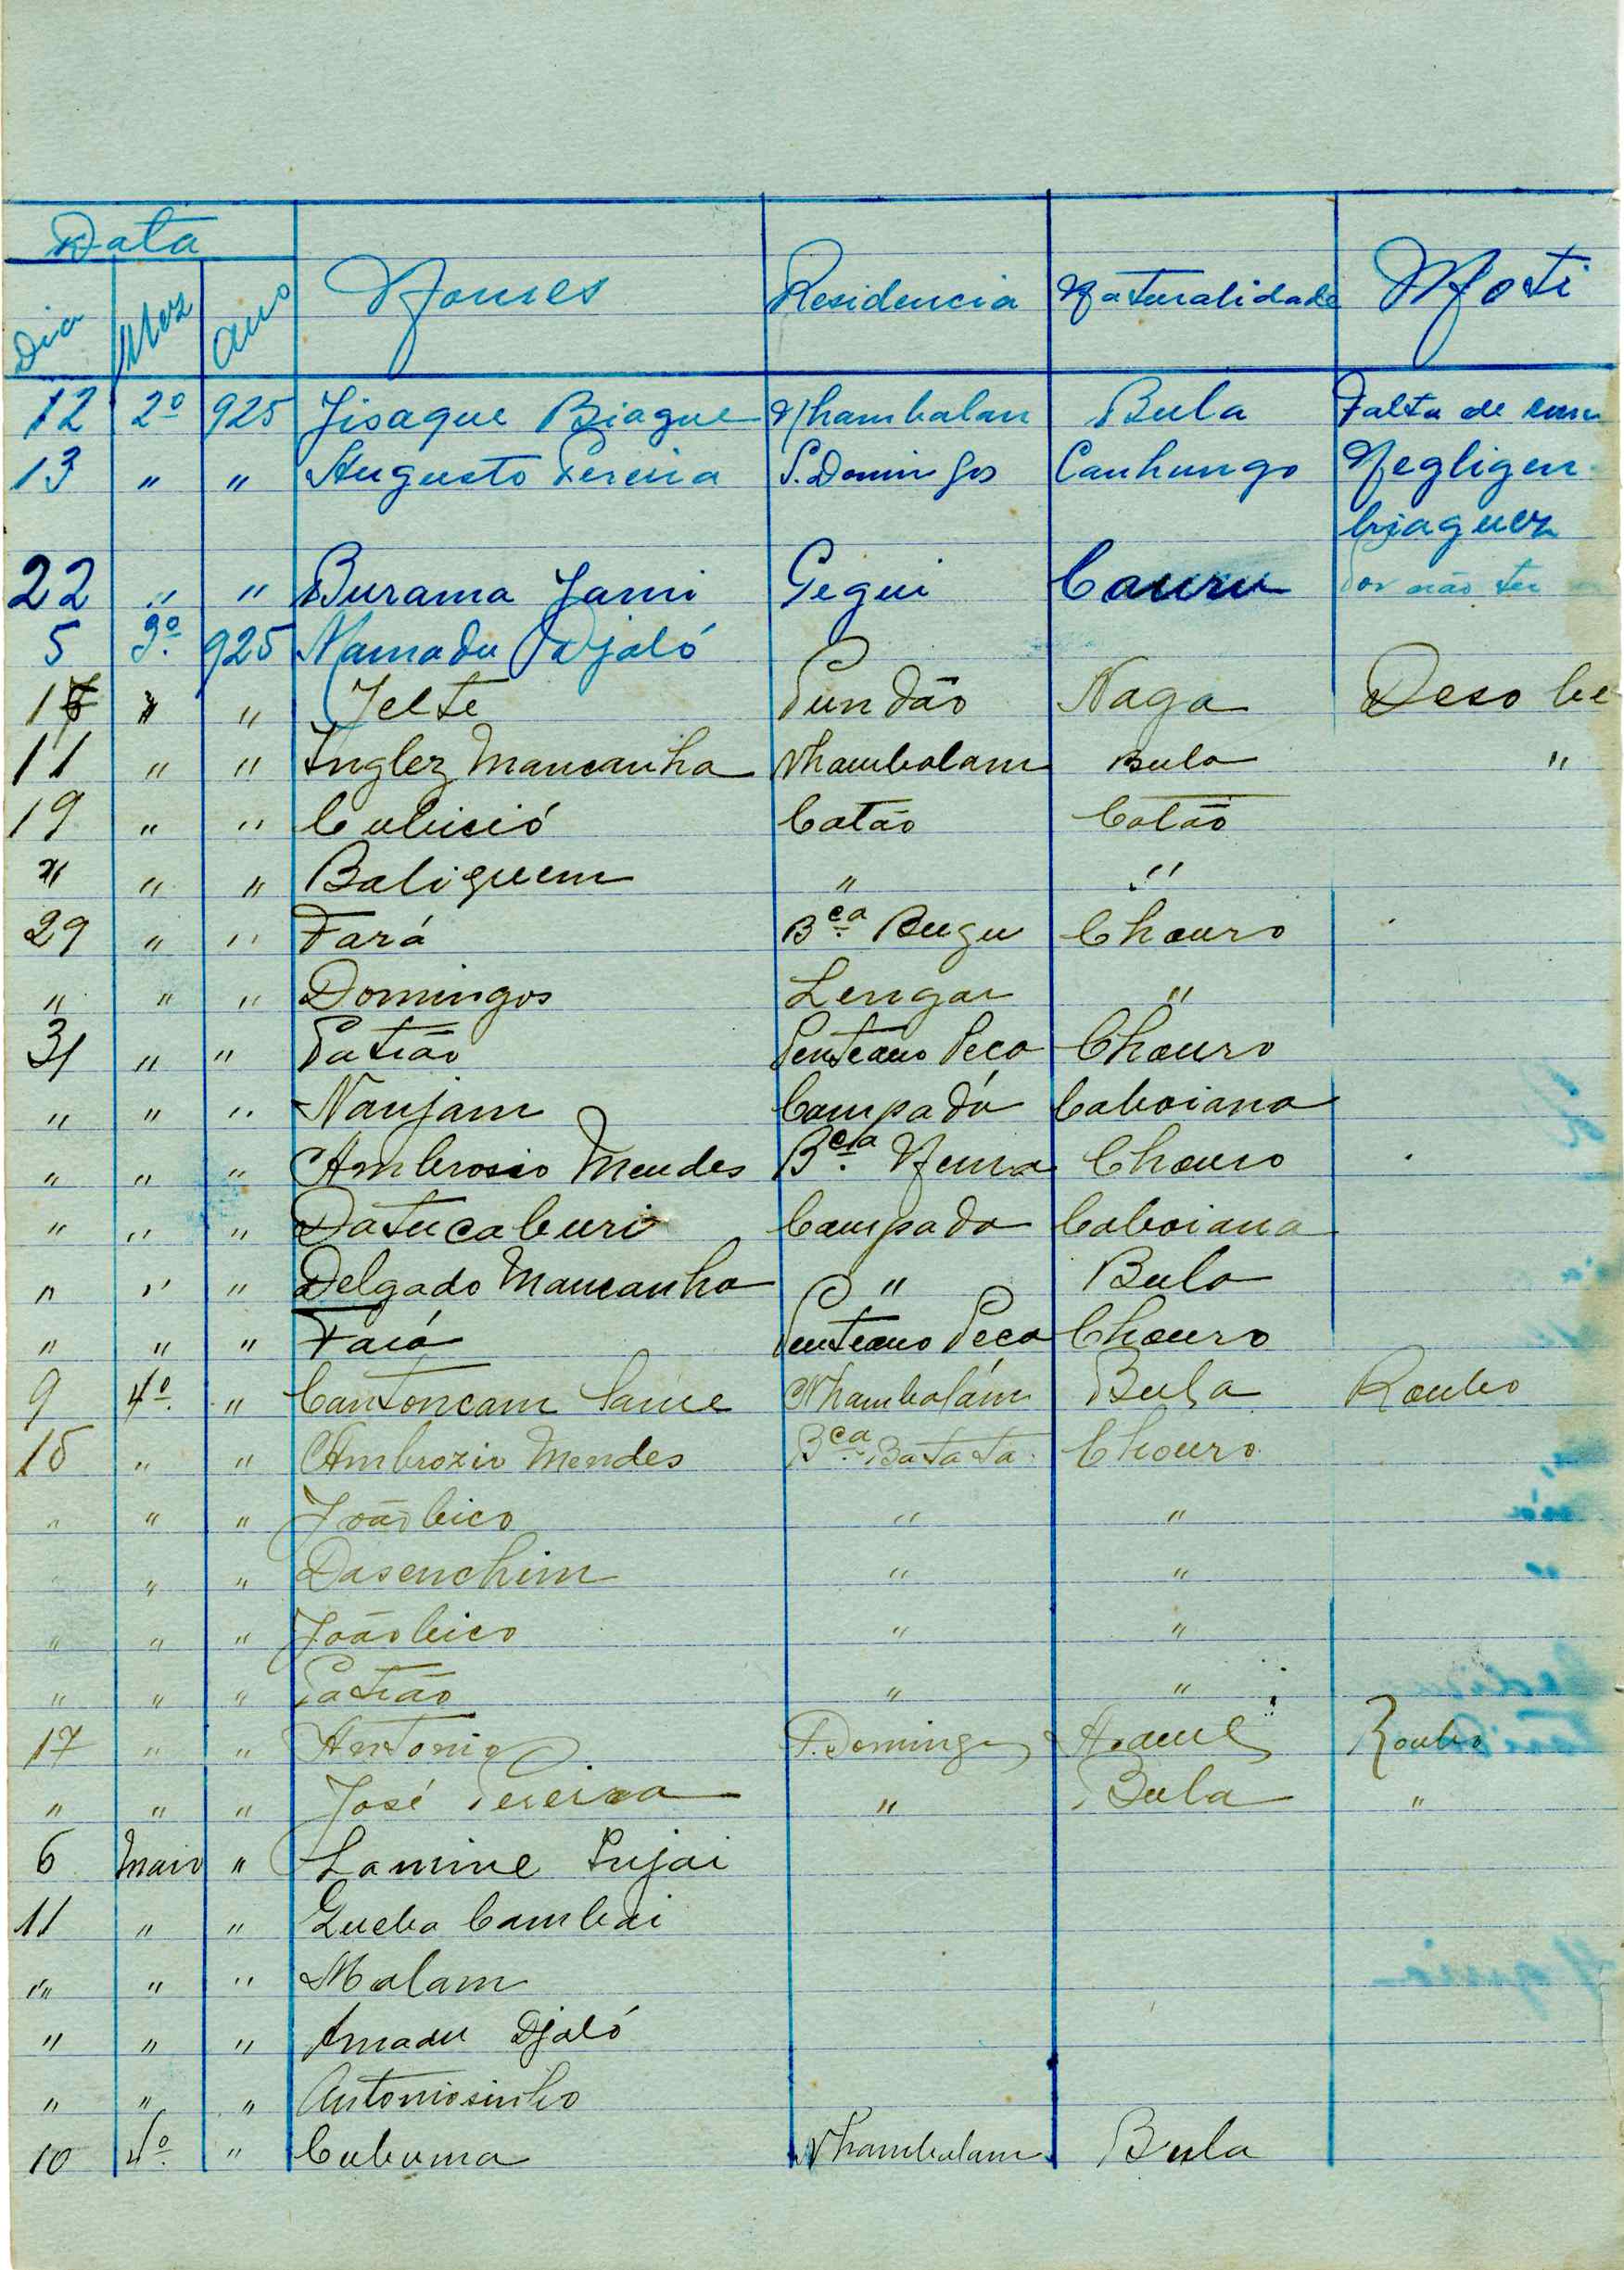 Data
Dia Mez Ano Nomes Residencia Naturalidade Moti
12 2º 925 Jisaque Biague Nhambalan Bula Falta de
13 " " Augusto Pereira S. Domingos Canhungo Negligen
briaguez
22 " " Burama Jami Pegui Cauru Por não ter
5 3º 925 Mamadu Djaló
" " Jelte Pundão Naga Desobe
11 " " Inglez Mancanha Nhambalam Bula "
19 " " Cubició Catão Catão
" " " Baliguem " "
29 " " Fará Bça. Bugu Chouro
" " " Domingos Lengar "
31 " " Patrão Penteano Peca Chouro
" " " Nanjam Campadá Caboiana
" " " Ambrosio Mendes Bça. Nema Chouro
" " " Datucaburi Campada Caboiana
" " " Delgado Mancanha " Bula
" " " Faiá Penteano Peca Chouro
9 4º " Cantoncam Same Nhambalám Bula Roubo
15 " " Ambrozio Mendes Bça. Batata Chouro
" " " João bico " "
" " Dasenchim " "
" " " João bico " "
" " " Patrão " "
17 " " Antonio S. Domingos Roubo
" " " José Pereira " Bula "
6 Maio " Lamine Injai
11 " " Queba Cambai
" " " Malam
" " " Amadu Djaló
" " " Antoniosinho
10 4º " Cubuma Nhambalam Bula